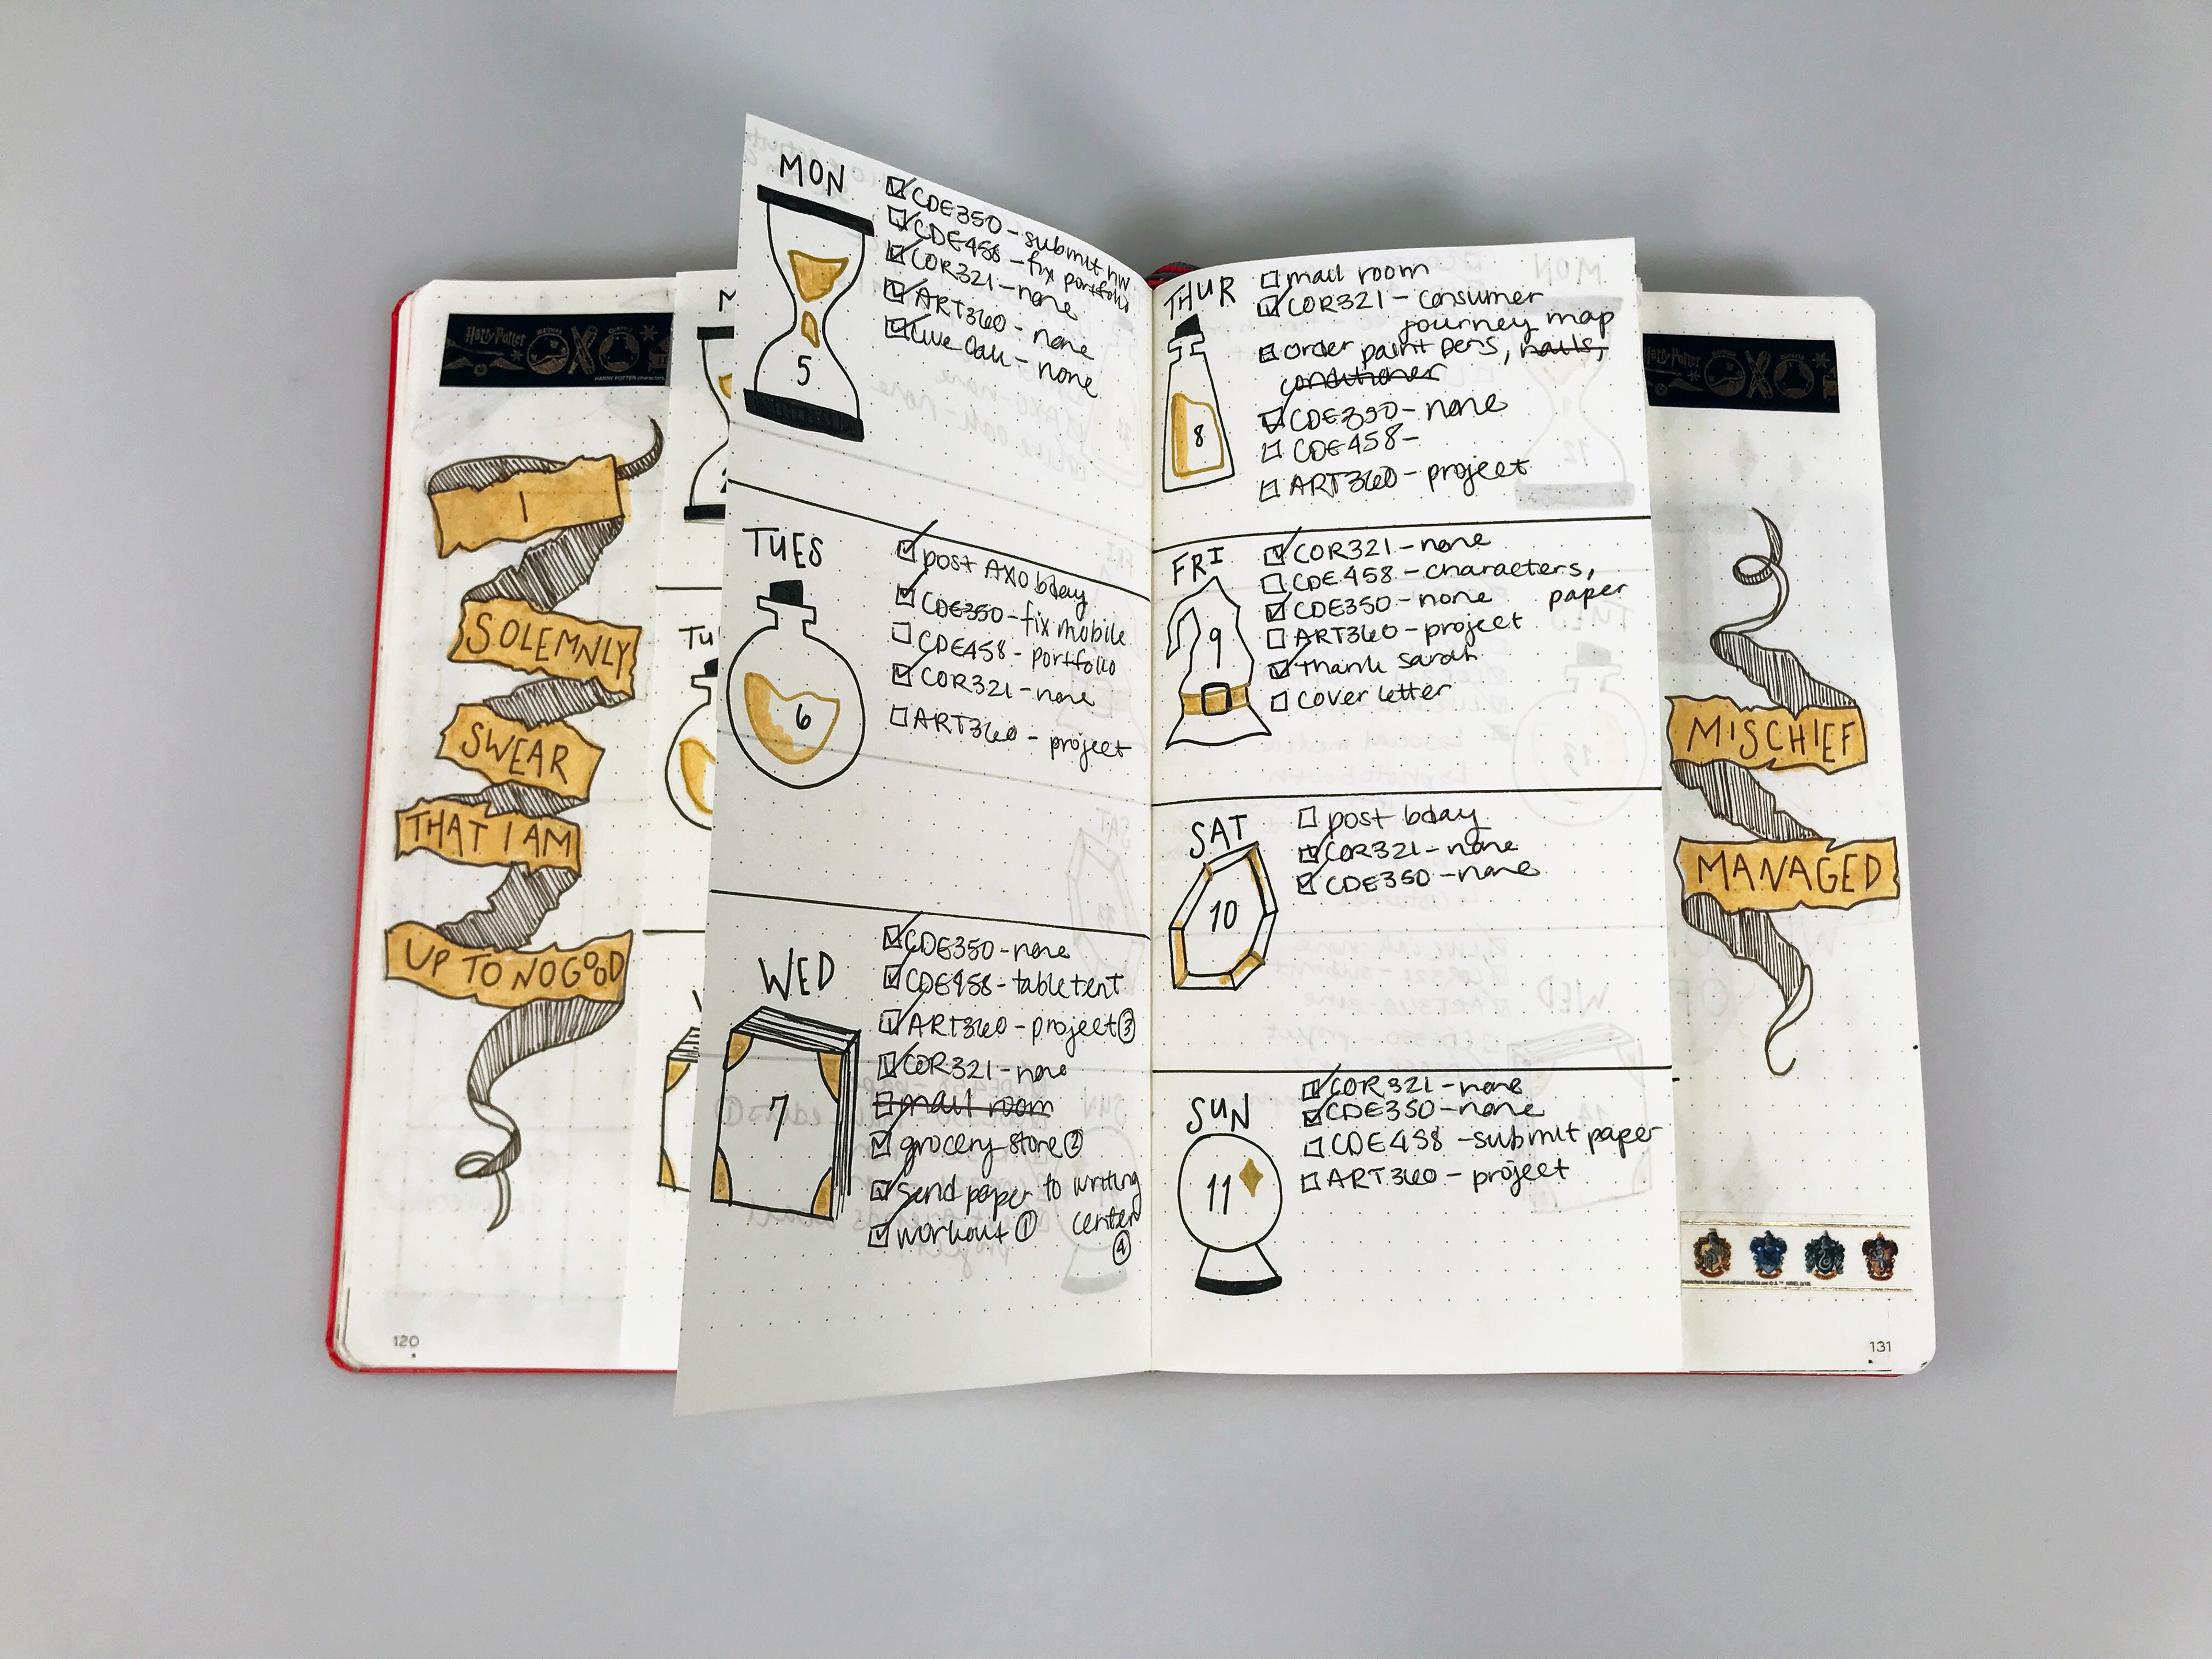 Harry Potter
HARRY POTTER characters,
I
SOLEMNLY
SWEAR
THAT I AM
UP TO NO GOOD
120
M
TU
MON
5
CDE350 - submit hw
CDE458 - fix portfolio
COR321 - none
ART360 - none
Live Oak - none
TUES
6
post AXO bday
CDE350 - fix mobile
CDE458 - portfolio
COR321 - none
ART360 - project
WED
7
CDE350 - none
CDE458 - table tent
ART360 - project ③
COR321 - none
mail room
grocery store ②
send paper to writing
center
④
workout ①
THUR
8
mail room
COR321 - consumer
journey map
order paint pens, nails,
conditioner
CDE350 - none
CDE458 -
ART360 - project
FRI
9
COR321 - none
CDE458 - characters,
paper
CDE350 - none
ART360 - project
thank sarah
cover letter
SAT
10
post bday
COR321 - none
CDE350 - none
SUN
11
COR321 - none
CDE350 - none
CDE458 - submit paper
ART360 - project
Harry Potter
MISCHIEF
MANAGED
131